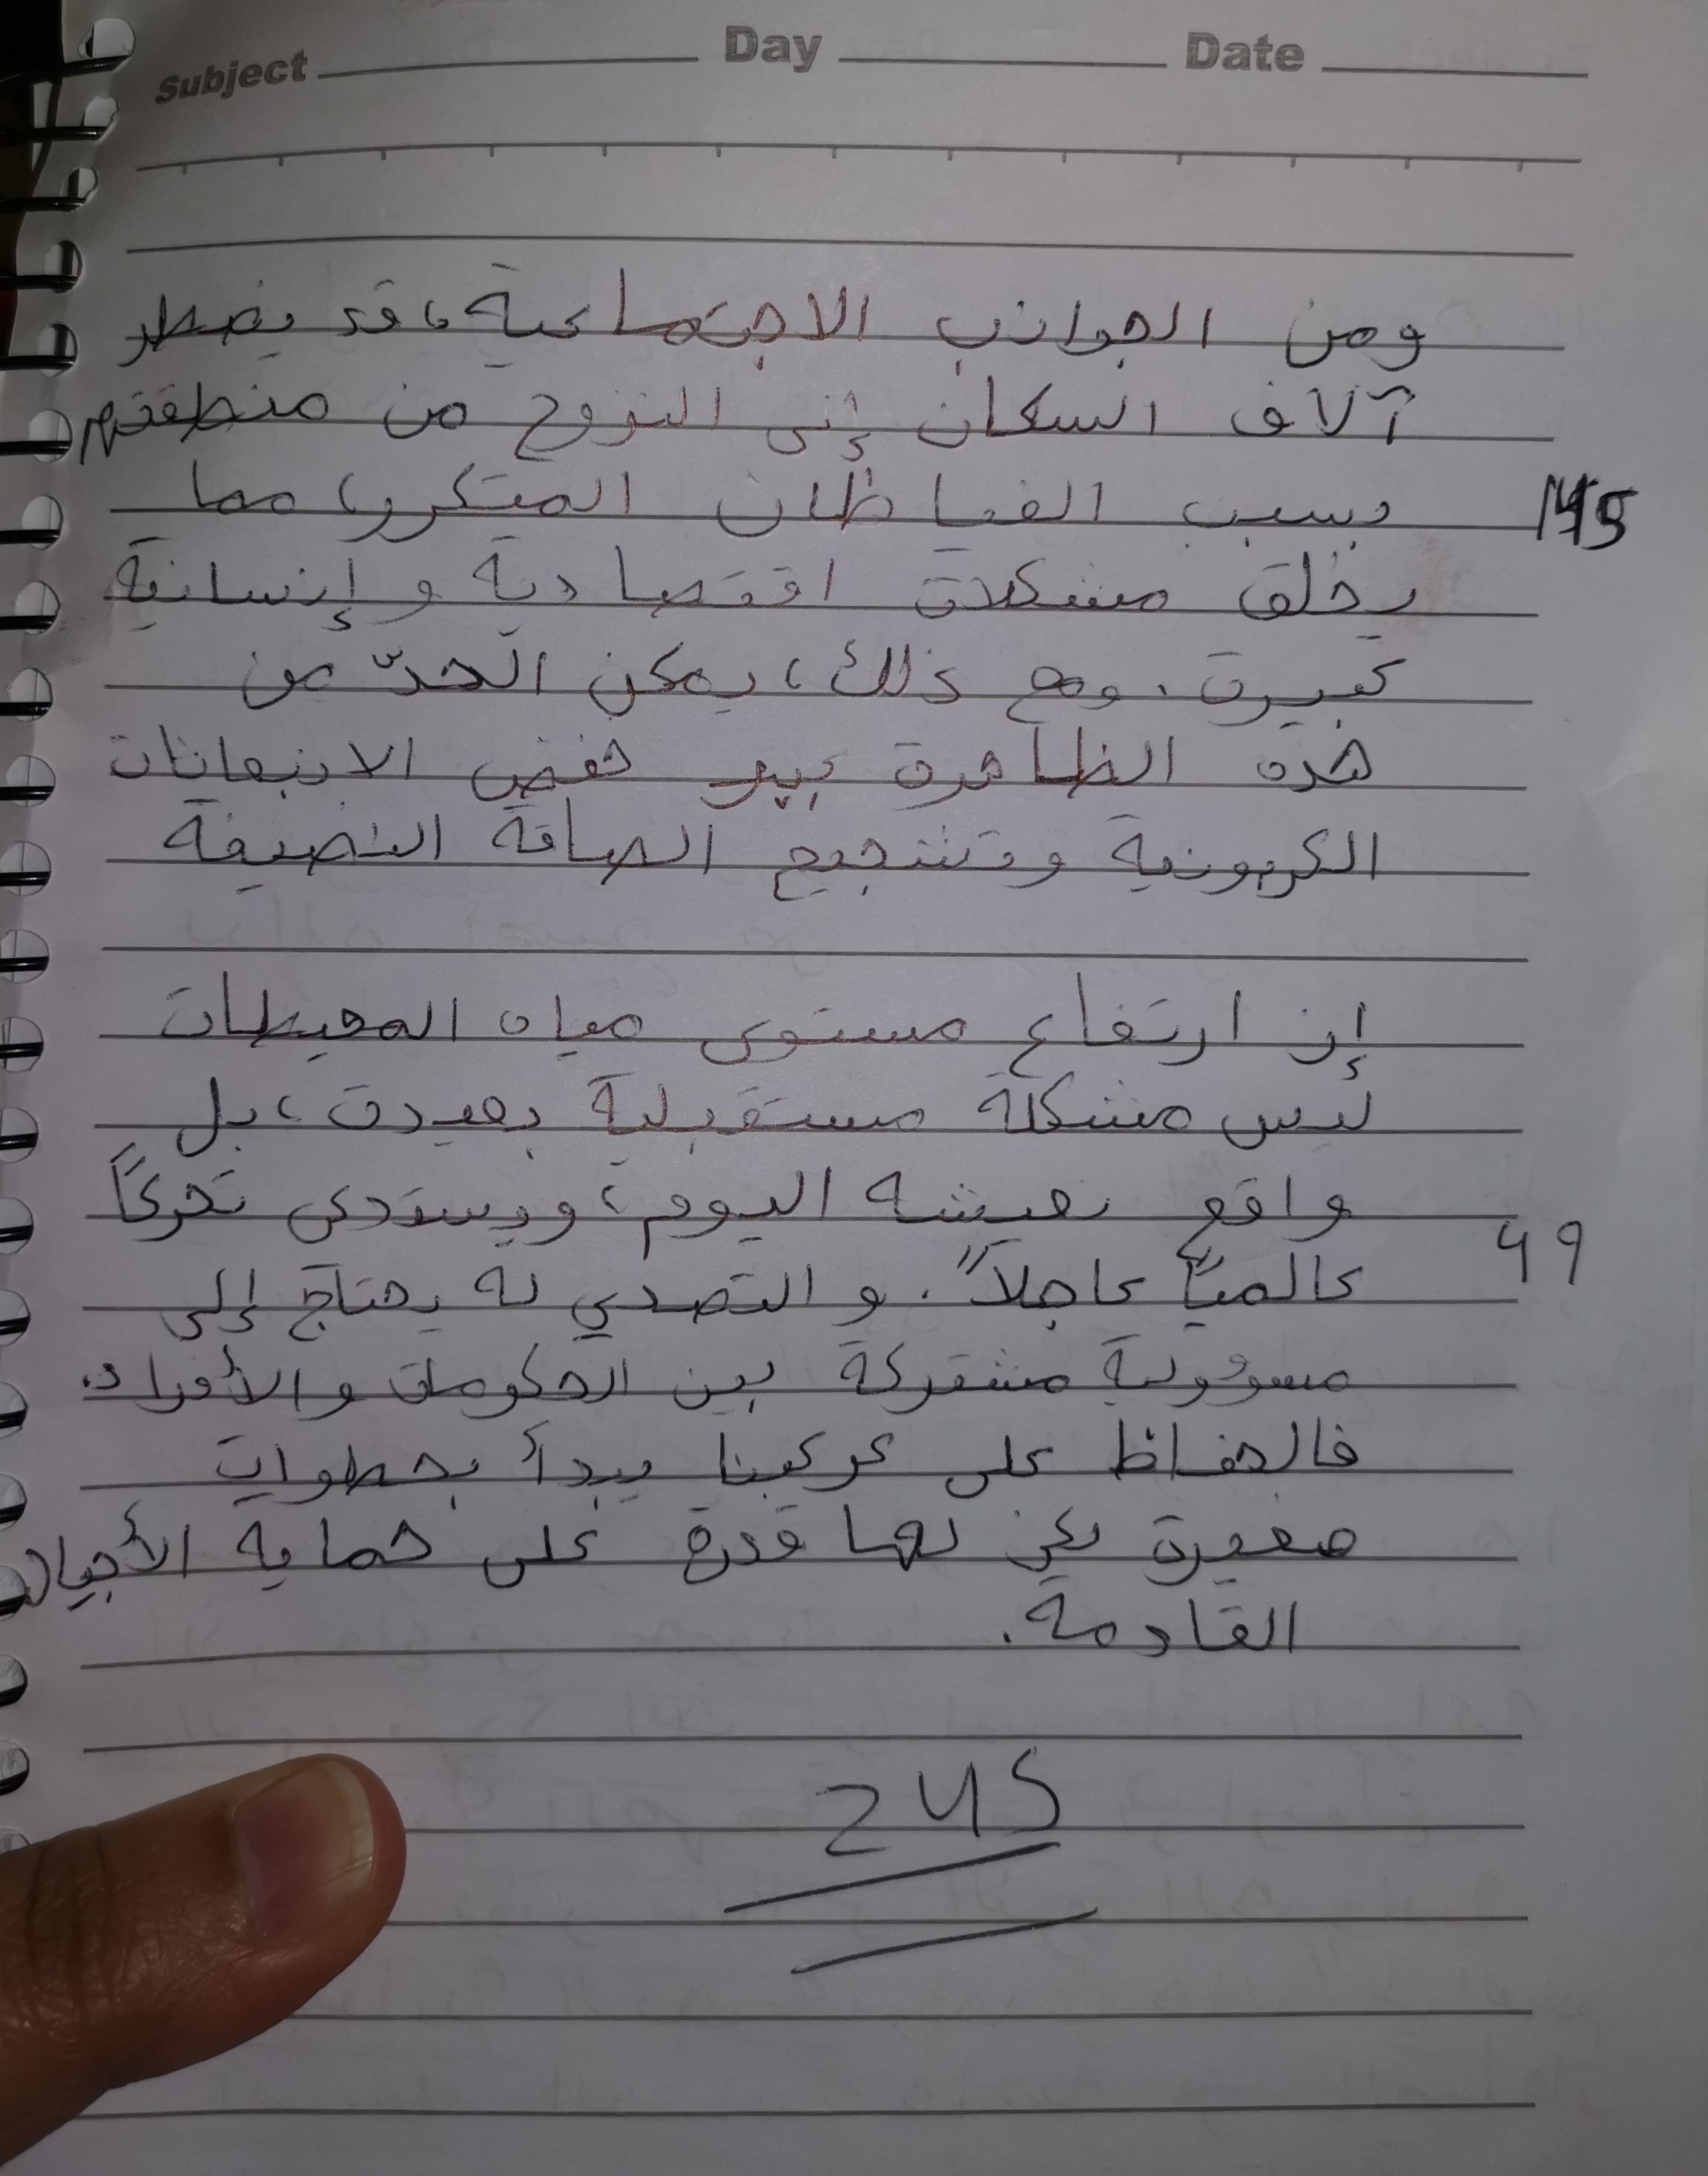 Subject Day Date
ومن الجوانب الاجتماعية، قد يضطر
آلاف السكان إلى النزوح من منطقتهم
بسبب الفياظان المتكرر، مما
145
يخلق مشكلات اقتصادية و إنسانية
كبيرة. ومع ذلك، يمكن الحدّ من
هذه الظاهرة خفض الانبعاثات
الكربونية وتشجيع الصاقة النضيفة
إن ارتفاع مستوى مياه المحيطات
ليس مشكلة مستقبلية بعيدة، بل
واقع نعيشه اليوم، ويستدى تحركًا
49
عالميًّا عاجلاً. و التصدي له يحتاج إلى
مسؤولية مشتركة بين الحكومة و الأفراد.
فالحفاظ على كوكبنا يبدأ بخطوات
صغيرة لكن لها قدرة على حماية الأجيال
القادمة.
245